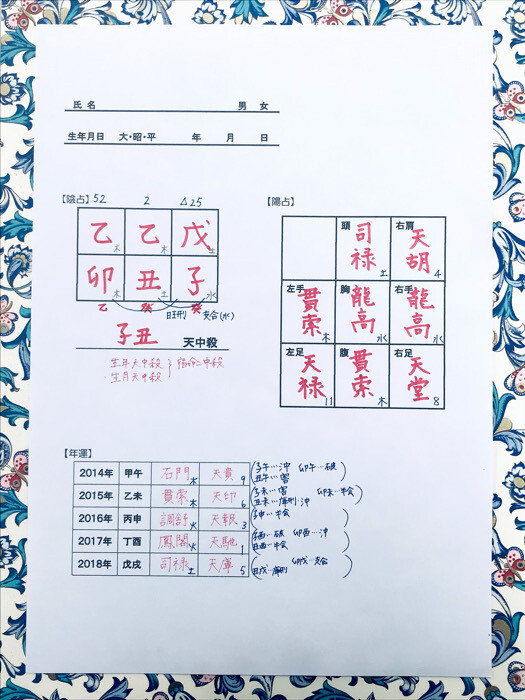 氏名 男 女
生年月日 大・昭・平 年 月 日
【陰占】 52 2 △25
乙木 乙木 戊土
卯木 丑土 子水
乙 癸 癸
旺刑 支合(水)
子丑 天中殺
・生年天中殺
・生月天中殺 } 宿命二中殺
【陽占】
頭 司禄 土 右肩 天胡 4
左手 貫索 木 胸 龍高 水 右手 龍高 水
左足 天禄 11 腹 貫索 木 右足 天堂 8
【年運】
2014年 甲午 石門 木 天貴 9 (子午…沖 卯午…破
丑午…害)
2015年 乙未 貫索 木 天印 6 (子未…害 卯未…半会
丑未…庫刑・沖)
2016年 丙申 調舒 火 天報 3 (子申…半会)
2017年 丁酉 鳳閣 火 天馳 1 (子酉…破 卯酉…沖
丑酉…半会)
2018年 戊戌 司禄 土 天庫 5 (卯戌…支合
丑戌…庫刑)